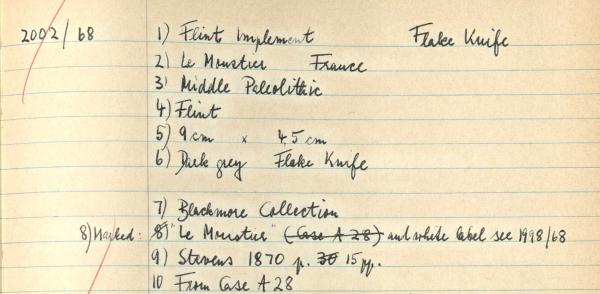 2002/68 1) Flint Implement Flake Knife
2) Le Moustier France
3) Middle Paleolithic
4) Flint
5) 9cm x 4.5cm
6) Dark grey Flake Knife
7) Blackmore Collection
8) Marked: 8) "Le Moustier" (Case A 28) and white label see 1998/68
9) Stevens 1870 p. 30 15pp.
10 From Case A 28